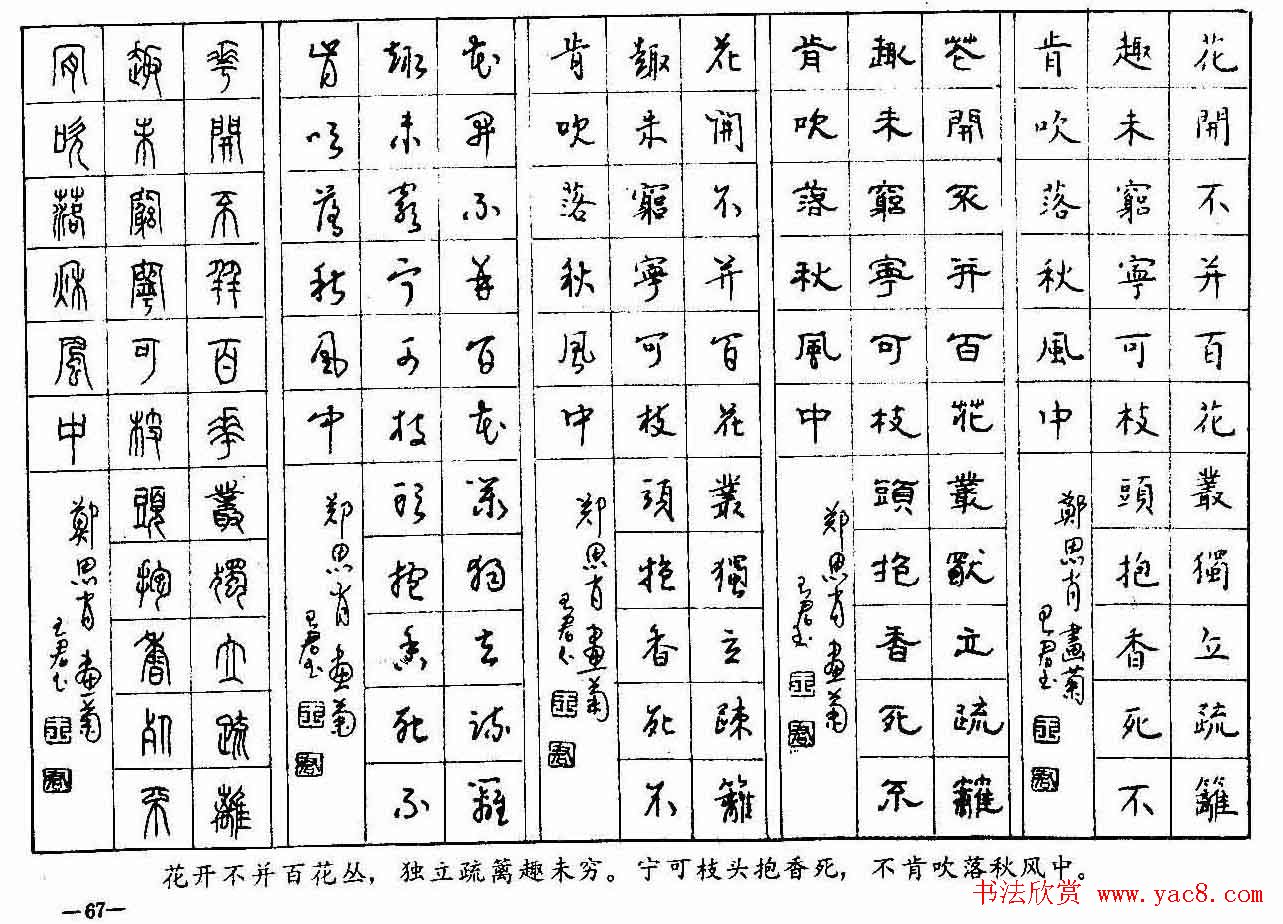 花開不并百花叢獨立疏籬
趣未窮寧可枝頭抱香死不
肯吹落秋風中
鄭思肖畫菊
花開不并百花叢獨立疏籬
趣未窮寧可枝頭抱香死不
肯吹落秋風中
郑思肖畫菊
花開不并百花叢獨立疎籬
趣未窮寧可枝頭抱香死不
肯吹落秋風中
郑思肖畫菊
花開不并百花叢獨立疏籬
趣未窮宁可枝頭抱香死不
肯吹落秋風中
郑思肖畫菊
華開不并百華叢獨立疏離
趣未窮寧可枝頭抱香死不
肯吹落秋風中
鄭思肖畫菊
花开不并百花丛，独立疏篱趣未穷。宁可枝头抱香死，不肯吹落秋风中。
—67—
书法欣赏 www.yac8.com